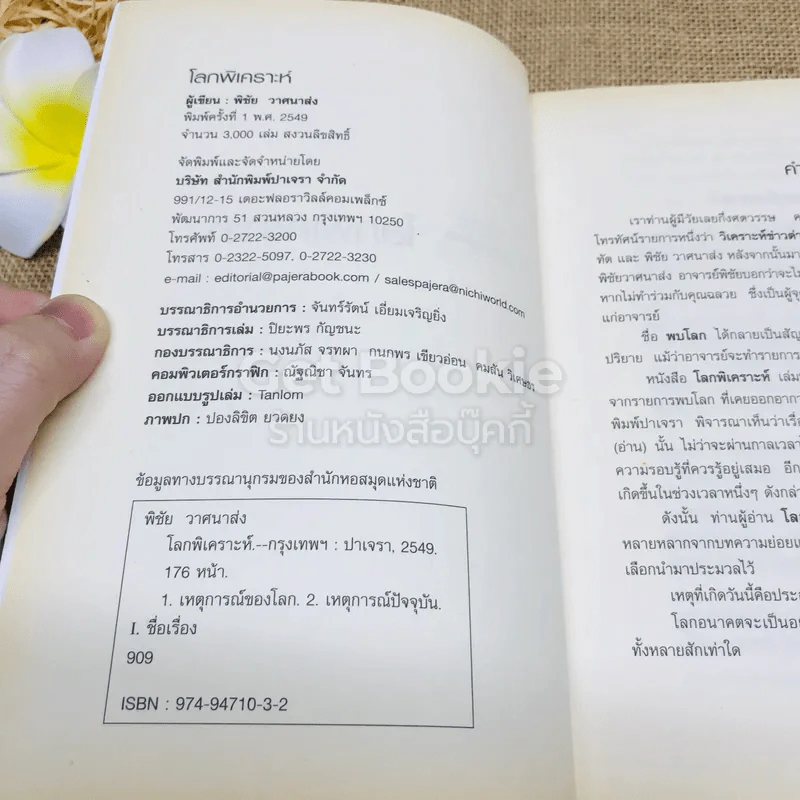 โลกพิเคราะห์
ผู้เขียน : พิชัย วาศนาส่ง
พิมพ์ครั้งที่ 1 พ.ศ. 2549
จำนวน 3,000 เล่ม สงวนลิขสิทธิ์
จัดพิมพ์และจัดจำหน่ายโดย
บริษัท สำนักพิมพ์ปาเจรา จำกัด
991/12-15 เดอะฟลอราวิลล์คอมเพล็กซ์
พัฒนาการ 51 สวนหลวง กรุงเทพฯ 10250
โทรศัพท์ 0-2722-3200
โทรสาร 0-2322-5097, 0-2722-3230
e-mail : editorial@pajerabook.com / salespajera@nichiworld.com
บรรณาธิการอำนวยการ : จันทร์รัตน์ เอี่ยมเจริญยิ่ง
บรรณาธิการเล่ม : ปิยะพร กัญชนะ
กองบรรณาธิการ : นงนภัส จรทผา กนกพร เขียวอ่อน คมสัน วิเศษธร
คอมพิวเตอร์กราฟิก : ณัฐณิชา จันทร
ออกแบบรูปเล่ม : Tanlom
ภาพปก : ปองลิขิต ยวดยง
Get Bookie
ร้านหนังสือบุ๊คกี้
ข้อมูลทางบรรณานุกรมของสำนักหอสมุดแห่งชาติ
พิชัย วาศนาส่ง
โลกพิเคราะห์.--กรุงเทพฯ : ปาเจรา, 2549.
176 หน้า.
1. เหตุการณ์ของโลก. 2. เหตุการณ์ปัจจุบัน.
I. ชื่อเรื่อง
909
ISBN : 974-94710-3-2
เราท่านผู้มีวัยเลยกึ่งศตวรรษ
โทรทัศน์รายการหนึ่งว่า วิเคราะห์ข่าวต่า
ทัด และ พิชัย วาศนาส่ง หลังจากนั้นมา
พิชัยวาศนาส่ง อาจารย์พิชัยบอกว่าจะไม่
หากไม่ทำร่วมกับคุณฉลวย ซึ่งเป็นผู้จุ
แก่อาจารย์
ชื่อ พบโลก ได้กลายเป็นสัญ
ปริยาย แม้ว่าอาจารย์จะทำรายการ
หนังสือ โลกพิเคราะห์ เล่ม
จากรายการพบโลก ที่เคยออกอากา
พิมพ์ปาเจรา พิจารณาเห็นว่าเรื่อ
(อ่าน) นั้น ไม่ว่าจะผ่านกาลเวลาไ
ความรอบรู้ที่ควรรู้อยู่เสมอ อีก
เกิดขึ้นในช่วงเวลาหนึ่งๆ ดังกล่า
ดังนั้น ท่านผู้อ่าน โล
หลายหลากจากบทความย่อยแ
เลือกนำมาประมวลไว้
เหตุที่เกิดวันนี้คือประ
โลกอนาคตจะเป็นอย
ทั้งหลายสักเท่าใด